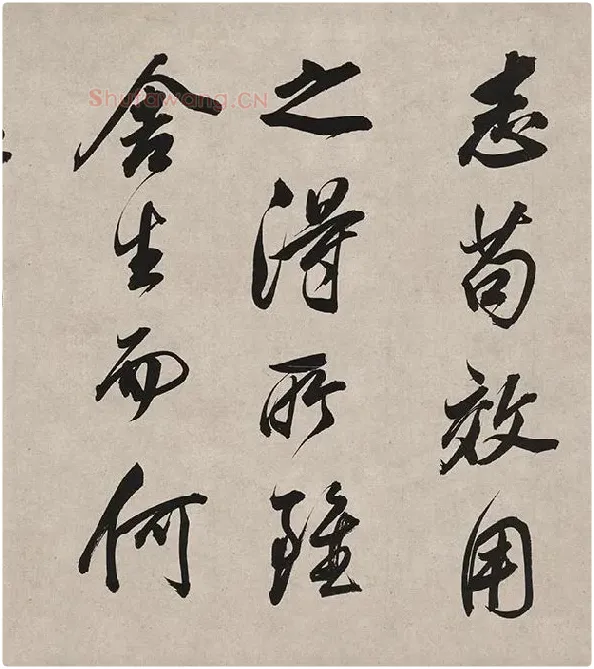 志苟效用
之得所雖
舍生而何
ShufaWang.CN